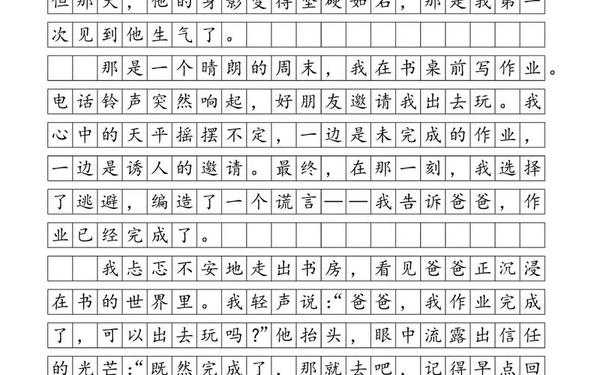 但那天，他的身影变得坚硬如石，那是我第一
次见到他生气了。
那是一个晴朗的周末，我在书桌前写作业。
电话铃声突然响起，好朋友邀请我出去玩。我
心中的天平摇摆不定，一边是未完成的作业，
一边是诱人的邀请。最终，在那一刻，我选择
了逃避，编造了一个谎言——我告诉爸爸，作
业已经完成了。
我忐忑不安地走出书房，看见爸爸正沉浸
在书的世界里。我轻声说：“爸爸，我作业完成
了，可以出去玩吗？”他抬头，眼中流露出信任
的光芒：“既然完成了，那就去吧，记得早点回